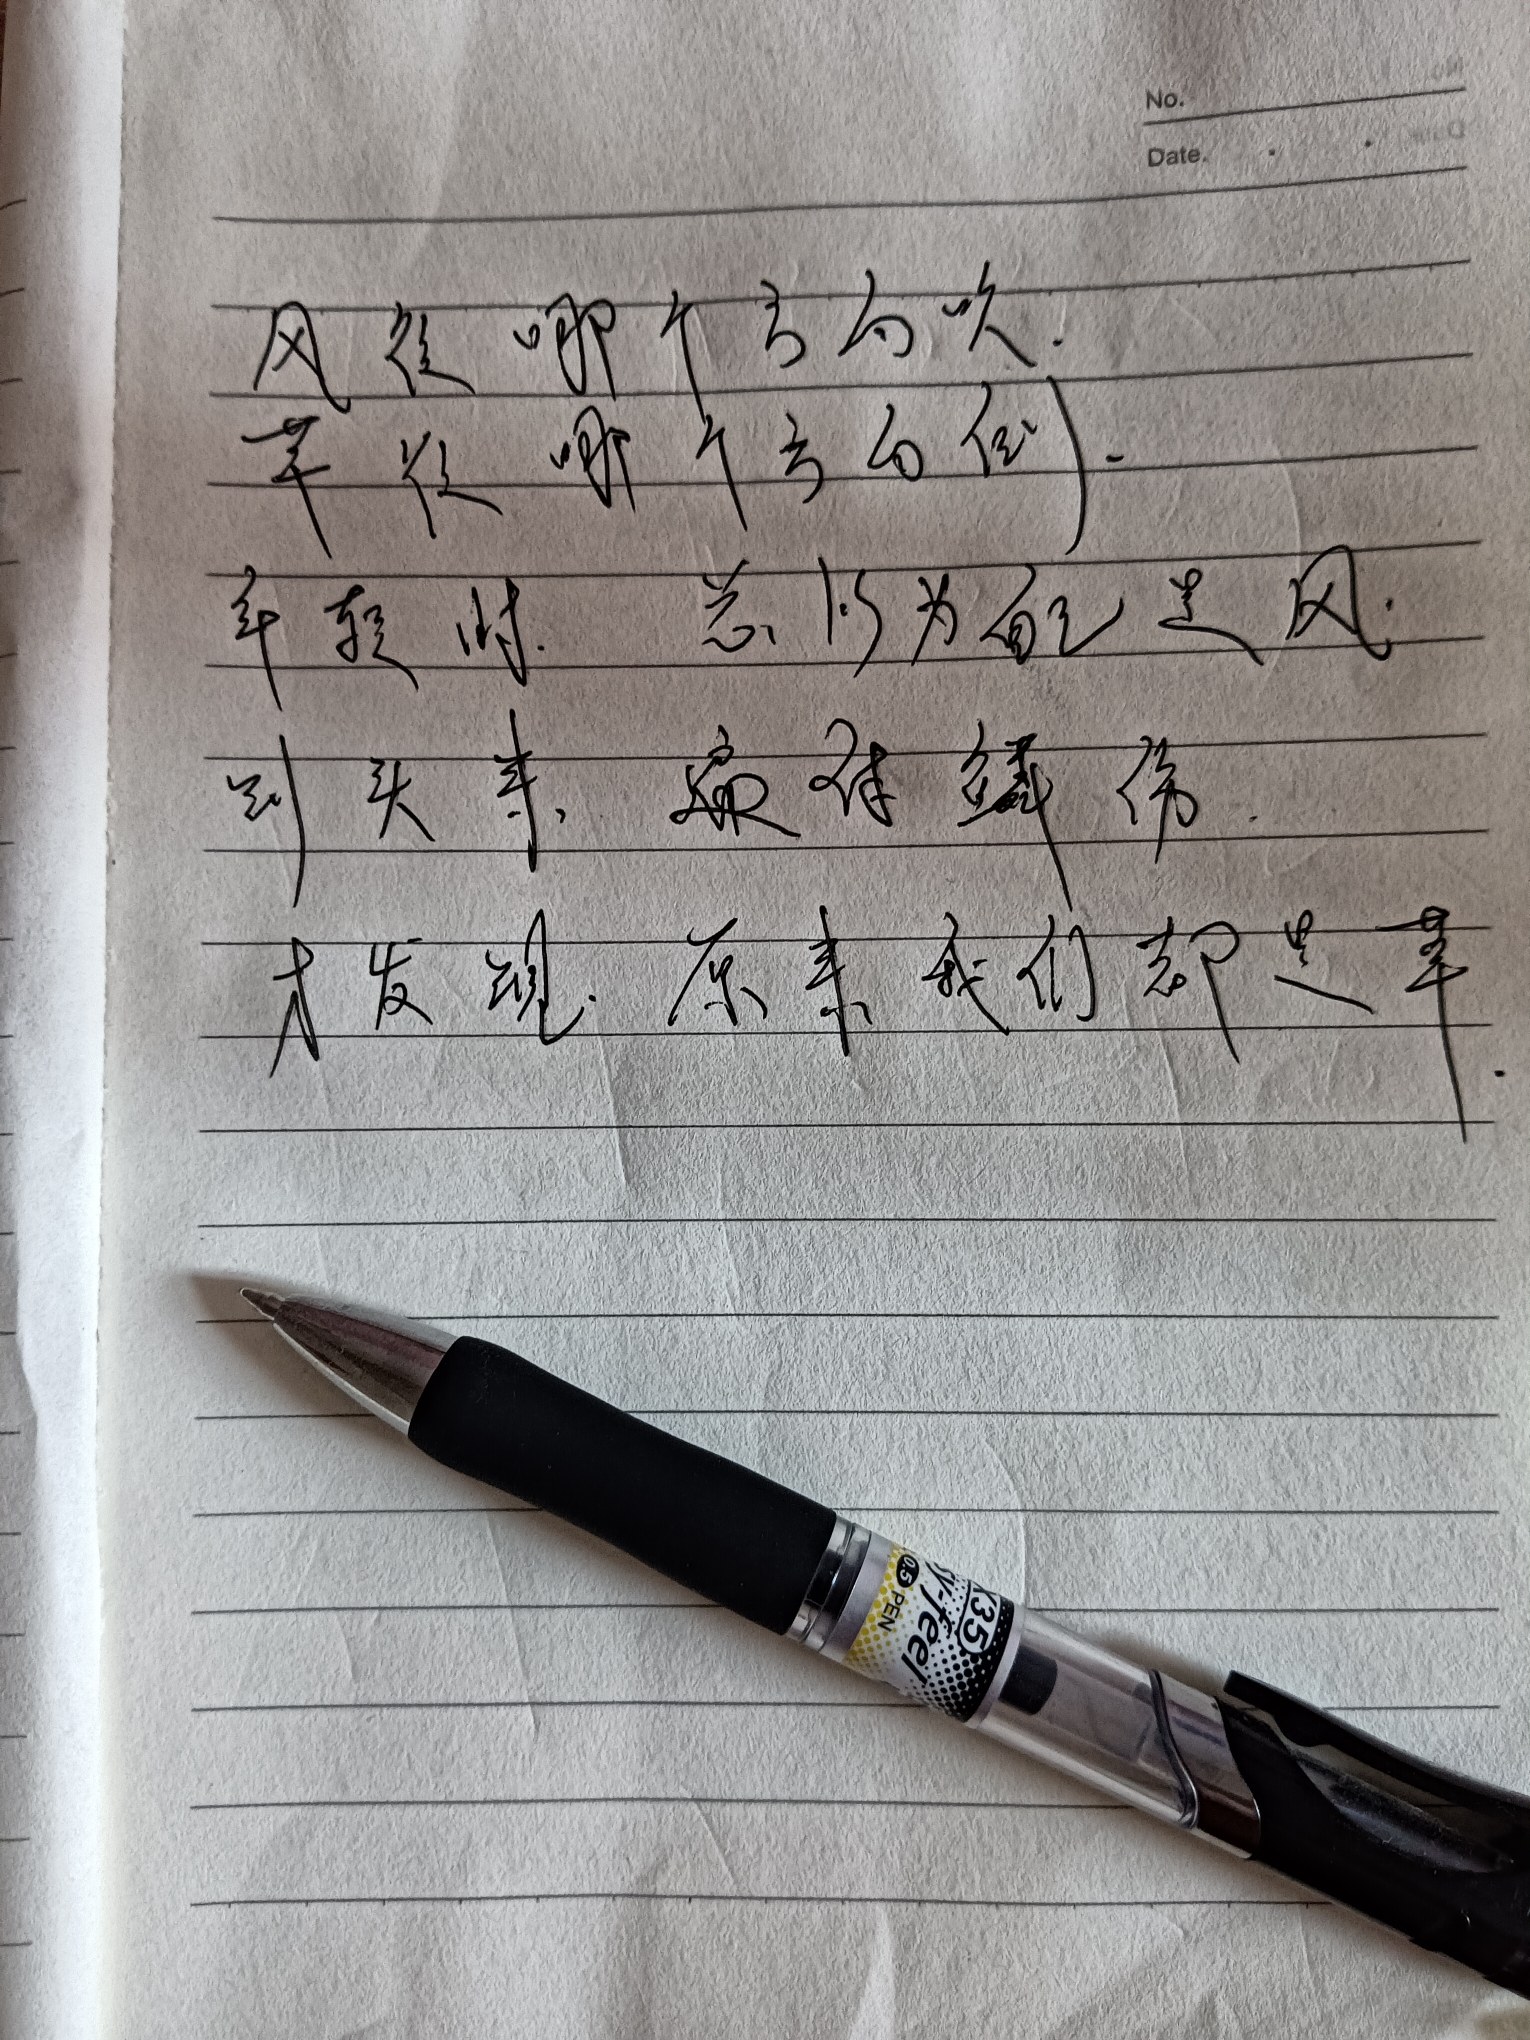 No.
Date.
风往哪个方向吹.
草往哪个方向倒.
年轻时. 总以为自己是风.
到头来、遍体鳞伤.
才发现. 原来我们都是草.
K35
sy-feel
0.5 PEN